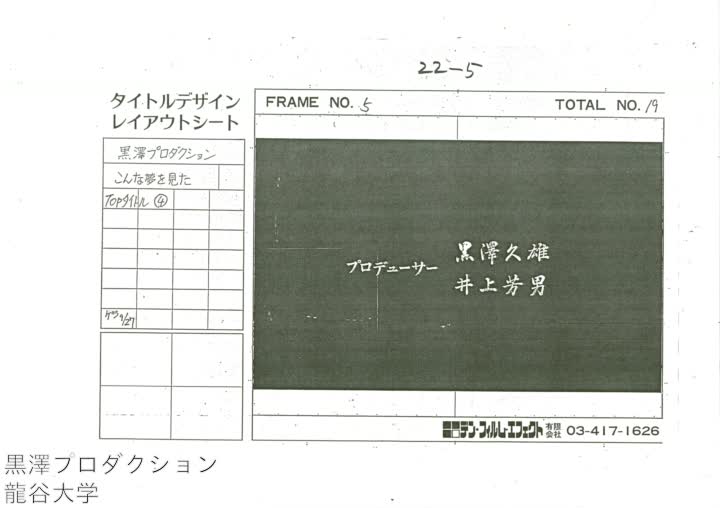 22-5
タイトルデザイン
レイアウトシート
FRAME NO. 5
TOTAL NO. 19
黒澤プロダクション
こんな夢を見た
Topタイトル ④
9/27
プロデューサー
黒澤久雄
井上芳男
デン・フィルム・エフェクト 有限会社 03-417-1626
黒澤プロダクション
龍谷大学